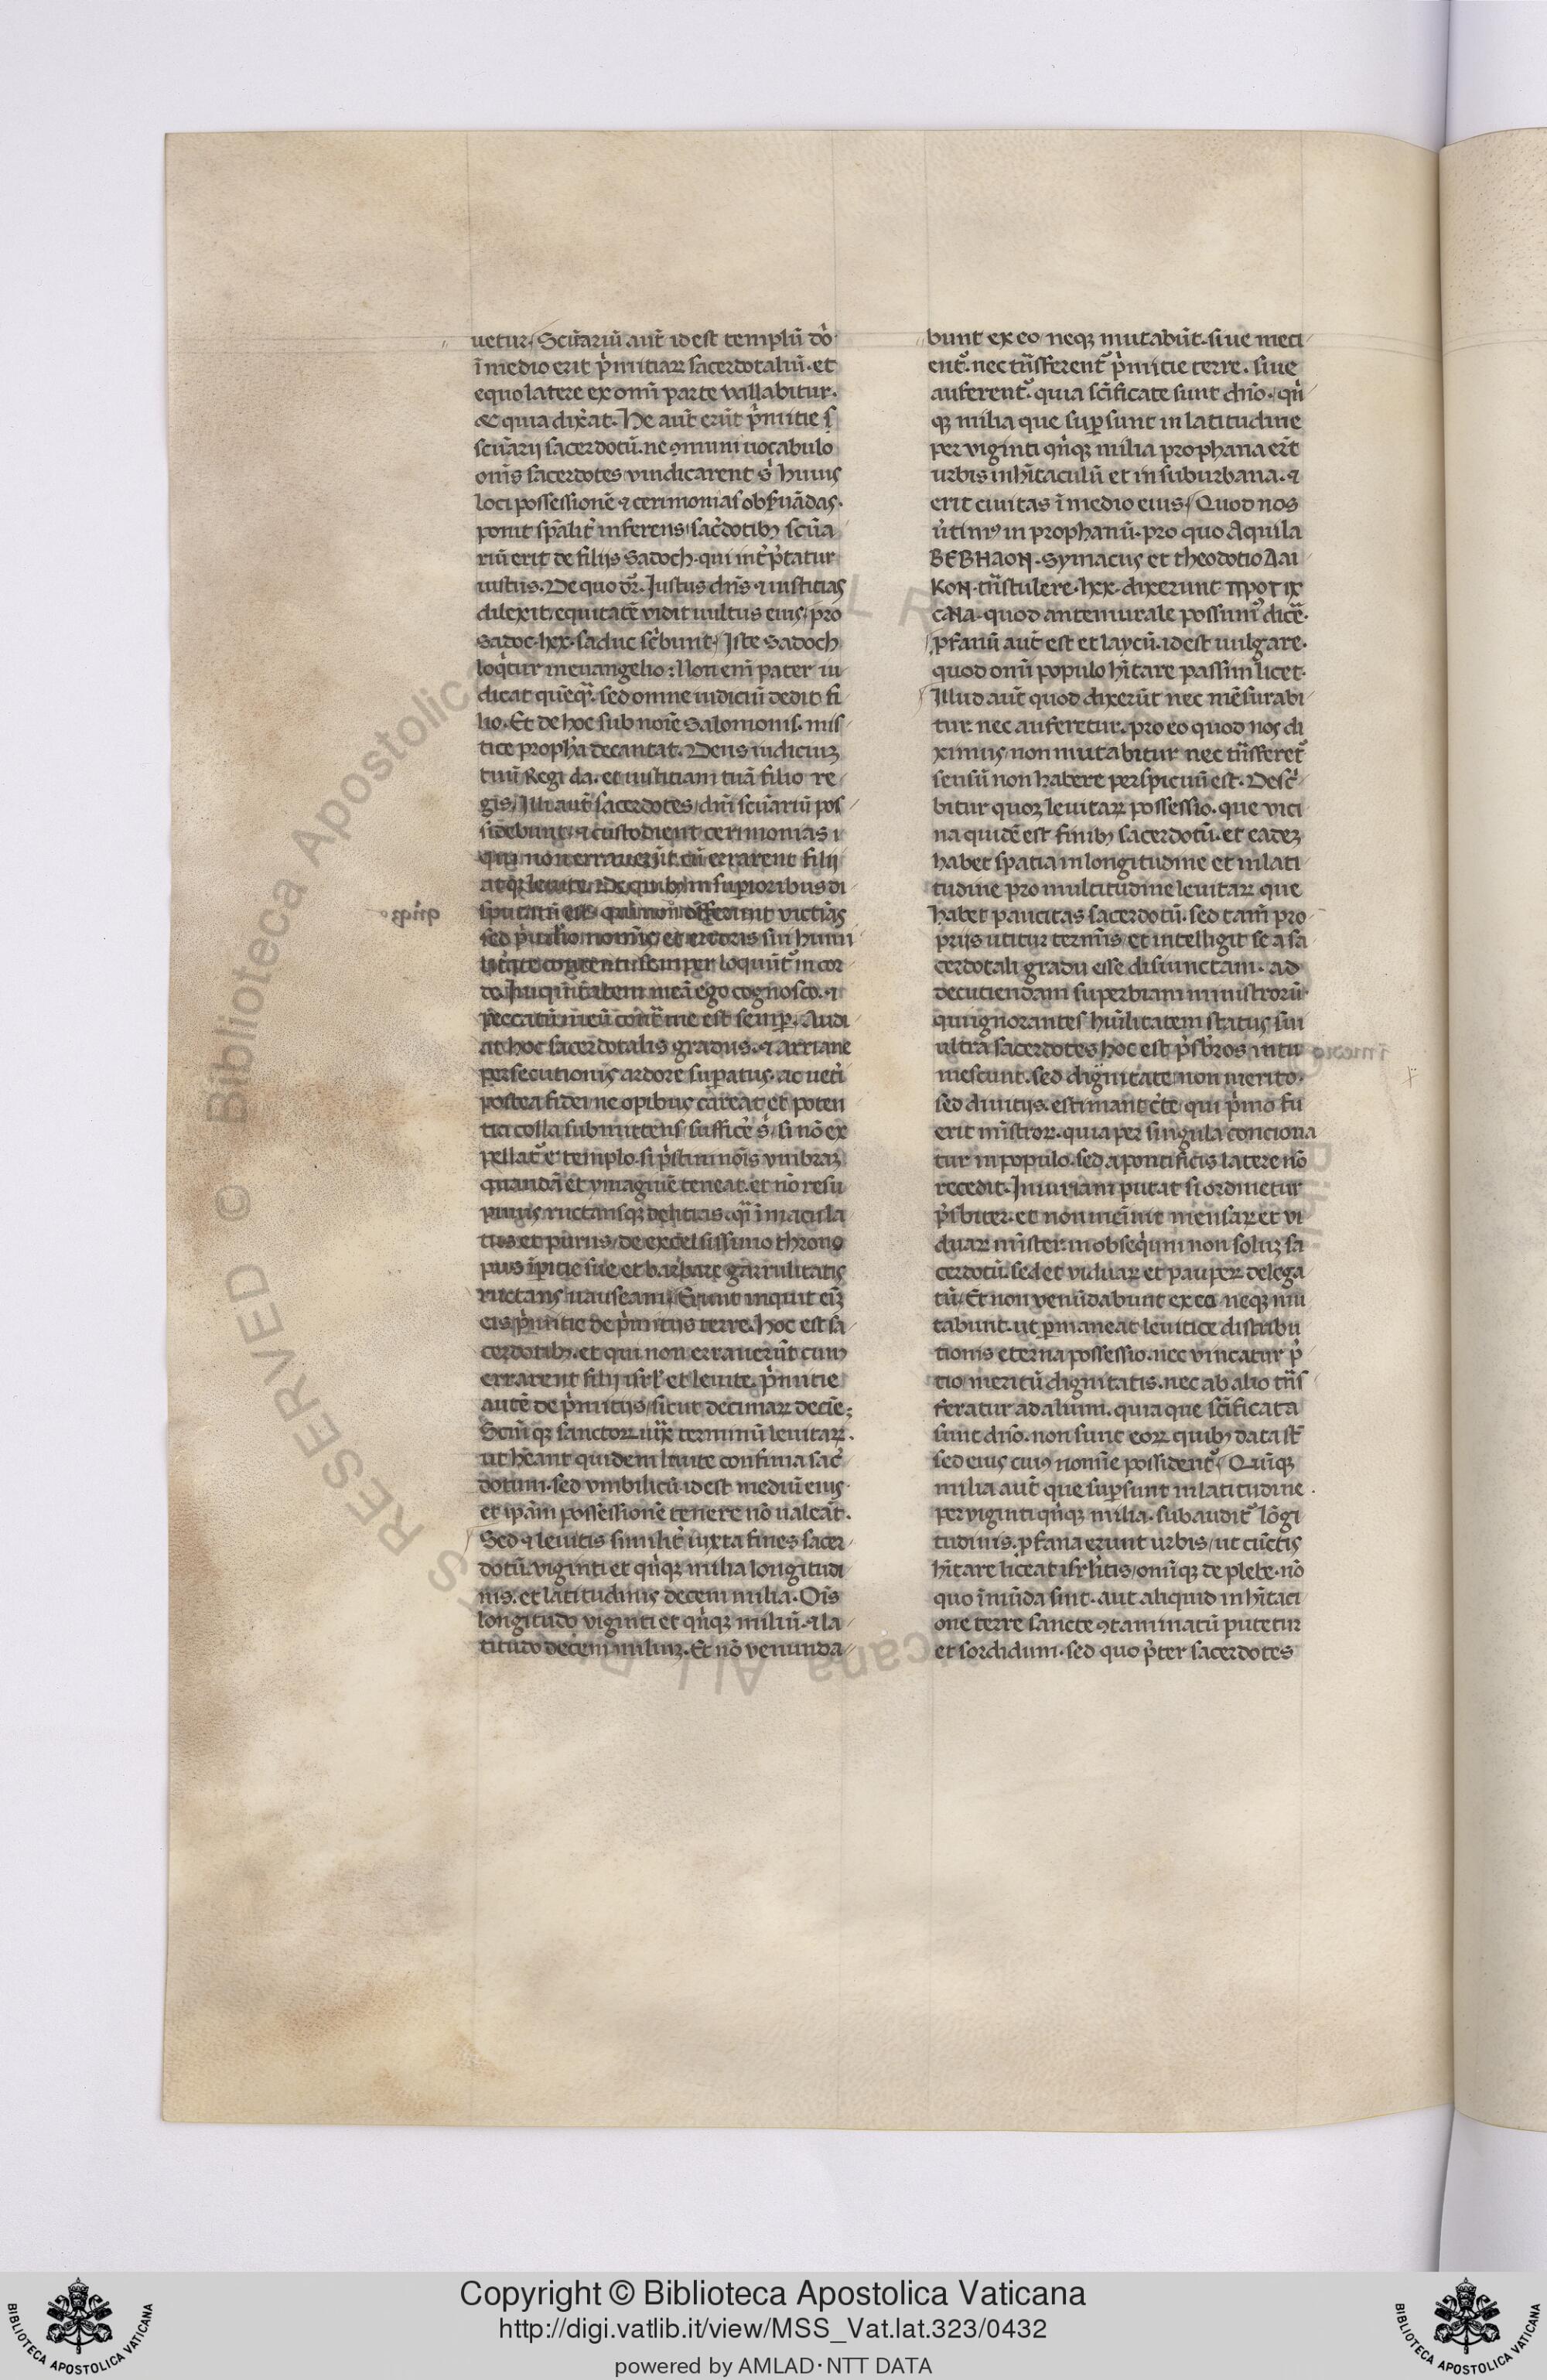 uetur. Scu̅ariu̅ aut̅ id est templu̅ do̅
i̅ medio erit p̓mitiaꝝ sacerdotaliu̅. et
equo latere ex om̅i parte vallabitur.
& quia dix̓at. He aut̅ eru̅t p̓mitie s
scu̅arij sacerdotu̅. ne ꝯmuni uocabulo
om̅s sacerdotes vindicarent s̓ huius
loci possessione̅ ⁊ cerimonias obẜua̅das.
ponit sp̅alit̓ inferens sac̓dotibꝫ scu̅a
riu̅ erit de filijs Sadoch. qui int̓p̓tatur
iustus. De quo dr̅. Iustus dn̅s ⁊ iustitias
dilexit equitate̅ vidit uultus eius. pro
Sadoc. hex. saduc sc̓bunt. Iste Sadoch
loq̓tur in euangelio: Non eni̅ pater iu
dicat que̅qᷓ. sed omne iudiciu̅ dedit fi
lio. Et de hoc sub noi̅e Salomonis. mis
tice propha̅ decantat. Deus iudiciuꝫ
tuu̅ Regi da. et iustitiam tua̅ filio re
gis. Illi aut̅ sacerdotes dn̅i scu̅ariu̅ pos
sidebunt. ⁊ custodient cerimonias i
qui non erraueru̅t cu̅ errarent filij
atqꝫ leuite. De quibꝫ in superioribus di
sputatu̅ est. qui non offerunt victi̅as
sed
de. Iniquitatem mea̅ ego cognosco. ⁊
peccatu̅ meu̅ cont̓ me est semp̲. Audi
at hoc sacerdotalis gradus. ⁊ arriane
persecutionis ardore sup̲atus. ac uet̓i
postea fidei ne opibus careat et poten
tia colla submittens suffice̓ s̓ si no̅ ex
pellat᷑ e templo. si p̓stini no̅is vmbraꝫ
quanda̅ et ymagine̅ teneat. et no̅ resu
pinus ructansqꝫ delitias. qᷓ i̅macula
tus et purus de excelsissimo throno
ructans nauseam. Erunt inquit eiꝫ
eis p̓mitie de p̓mitijs terre. hoc est sa
cerdotibꝫ. et qui non erraueru̅t cum
errarent filij isrl̓ et leuite. p̓mitie
aute̅ de p̓mitijs sicut decimaꝝ deci̅e;
Scu̅ qꝫ sanctoꝝ iux̅ terminu̅ leuitaꝝ.
ut he̅ant quidem leuite confinia sac̓
dotum. sed vmbilicu̅ id est mediu̅ eius
et ipa̅m possessione̅ tenere no̅ ualea̅t.
Sed ⁊ leuitis similit̓ iuxta fines sacer
dotu̅ viginti et qn̓qꝫ milia longitudi
nis. et latitudinis decem milia. Oi̅s
longitudo viginti et qn̓qꝫ miliu̅. ⁊ la
titudo decem miliuꝫ. Et no̅ venunda
bunt ex eo neqꝫ mutabu̅t. siue meti
ent᷑. nec tn̅sferent᷑ p̓mitie terre. siue
auferent᷑. quia sc̅ificate sunt dn̅o. qn̓
qꝫ milia que sup̲sunt in latitudine
per viginti qn̓qꝫ milia prophana eru̅t
urbis in hi̅taculu̅ et in suburbana. ⁊
erit ciuitas i̅ medio eius. Quod nos
u̓timꝰ in prophanu̅. pro quo Aquila
BEBHAON. Symacus et theodotio Λai
KON. tn̅stulere. lxx. dixerunt πpoτιx
cNa. quod antemurale possum᷑ dice̅.
p̲fanu̅ aut̅ est et laycu̅. id est uulgare.
quod omi̅ populo hi̅tare passim licet.
Illud aut̅ quod dixeru̅t nec me̅surabi
tur. nec auferetur. pro eo quod nos di
ximus non mutabitur nec tn̅sferet᷑
sensu̅ non habere perspicuu̅ est. Desc̓
bitur quoqꝫ leuitaꝝ possessio. que vici
na quide̅ est finibꝫ sacerdotu̅. et eadeꝫ
habet spatia in longitudine et in lati
tudine pro multitudine leuitaꝝ que
habet paucitas sacerdotu̅. sed tam̅ pro
prijs utitur termi̅s et intelligit se a sa
cerdotali gradu esse disiunctam. ad
decutiendam superbiam ministroru̅.
qui ignorantes hu̅ilitatem status sui
ultra sacerdotes hoc est p̓sb̓ros intu
mescunt. sed dignitate non merito.
sed diuitijs. estimant c̓te qui p̓mo fu
erit mi̅stroꝝ. quia per singula conciona
tur in populo. sed a pontificis latere no̅
recedit. Iniuriam putat si ordinetur
p̓sbiter. et non memi̅it mensaꝝ et vi
duaꝝ mi̅ster. in obseq̓um non soluꝫ sa
cerdotu̅. sed et viduaꝝ et pauperꝝ delega
tu̅. Et non venu̅dabunt ex eo neqꝫ mu
tabunt. ut p̲maneat leuitice distribu
tionis eterna possessio. nec vincatur p̓
tio meritu̅ dignitatis. nec ab alio tn̅s
feratur ad alium. quia que sc̅ificata
sunt dn̅o. non sunt eoꝝ quibꝫ data st̅
sed eius cuiꝰ nomi̅e possident᷑. Qui̅qꝫ
milia aut̅ que sup̲sunt in latitudine
per viginti qn̓qꝫ milia. subaudit᷑ lo̅gi
tudinis. p̲fana erunt urbis. ut cu̅ctis
hi̅tare liceat isrl̓itis. omi̅qꝫ de plebe. no̅
quo i̅mu̅da sint. aut aliquid in hi̅taci
one terre sancte ꝯtaminatu̅ putetur
et sordidum. sed quo p̓ter sacerdotes
Copyright © Biblioteca Apostolica Vaticana
http://digi.vatlib.it/view/MSS_Vat.lat.323/0432
powered by AMLAD·NTT DATA
BIBLIOTECA APOSTOLICA VATICANA
BIBLIOTECA APOSTOLICA VATICANA